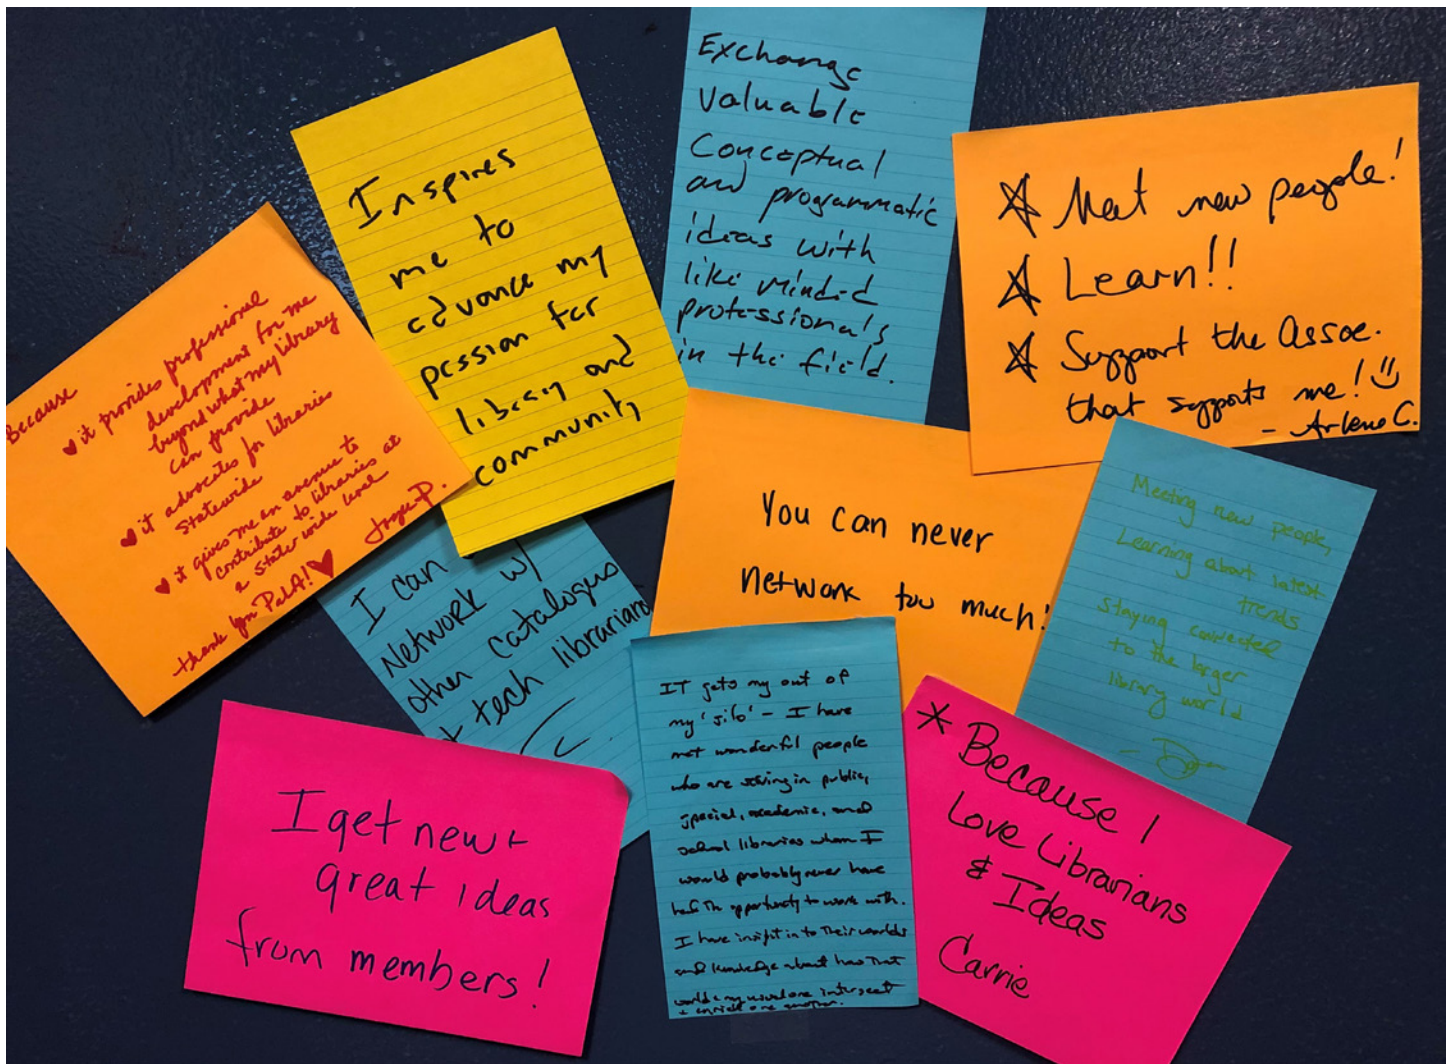 Because
♥ it provides professional
development for me
beyond what my library
can provide
♥ it advocates for libraries
statewide
♥ it gives me an avenue to
contribute to libraries at
a state wide level
thank you PaLA! ♥
Inspires
me to
advance my
passion for
library and
community
Exchange
valuable
Conceptual
and programmatic
ideas with
like minded
professionals
in the field.
☆ Meet new people!
☆ Learn!!
☆ Support the Assoc.
that supports me! ☺
- Arlene C.
I can
Network w/
other catalogers
+ tech librarians
You can never
network too much!
Meeting new people,
Learning about latest
trends
staying connected
to the larger
library world
I get new +
great ideas
from members!
IT gets my out of
my 'silo' - I have
met wonderful people
who are serving in public,
special, academic, and
school libraries whom I
would probably never have
had the opportunity to work with.
I have insight in to their worlds
and knowledge about how that
world & my world one intersect
+ enrich one another.
* Because I
Love Librarians
& Ideas
Carrie